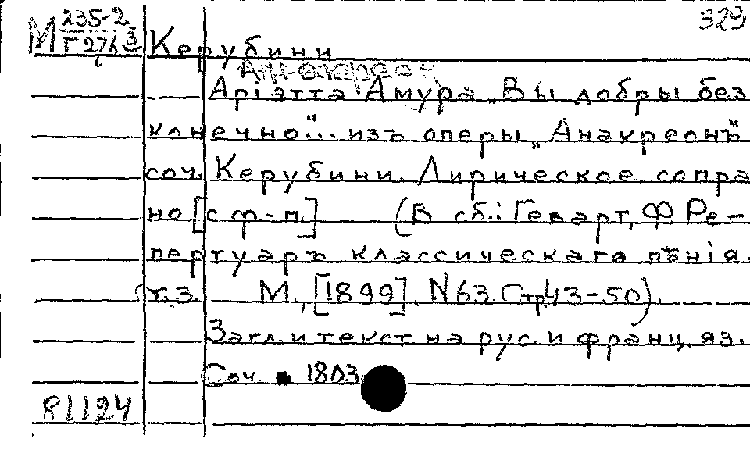 329
М 235-2
Г 276 3 Керубини
Аріэтта Амура „Вы добры без
конечно"... изъ оперы „Анакреонъ"
соч. Керубини. Лирическое сопра
но [с ф-п.] (В сб.: Геварт, Ф Ре-
пертуаръ классическаго пѣнія.
т.3. М., [1899]. N63. Стр 43-50).
Загл. и текст на рус. и франц. яз.
Соч. 1803
81124